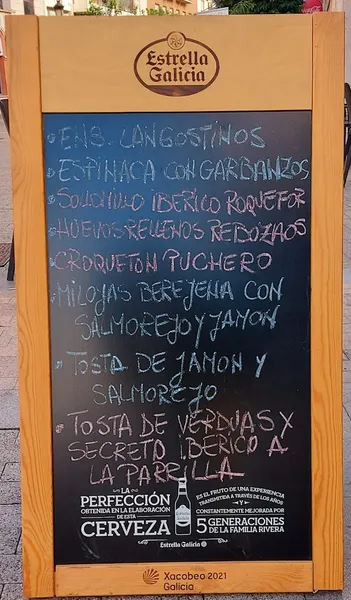 Estrella
Galicia
ENS. LANGOSTINOS
ESPINACA CON GARBANZOS
SOLOMILLO IBERICO ROQUEFOR
HUEVOS RELLENOS REBOZAOS
CROQUETON PUCHERO
MILOJAS BEREJENA CON
SALMOREJO Y JAMON
TOSTA DE JAMON Y
SALMOREJO
TOSTA DE VERDUAS Y
SECRETO IBERICO A
LA PARRILLA
LA
PERFECCIÓN
OBTENIDA EN LA ELABORACIÓN
DE ESTA
CERVEZA
ES EL FRUTO DE UNA EXPERIENCIA
TRANSMITIDA A TRAVÉS DE LOS AÑOS
Y
CONSTANTEMENTE MEJORADA POR
5 GENERACIONES
DE LA FAMILIA RIVERA
Estrella Galicia
Xacobeo 2021
Galicia